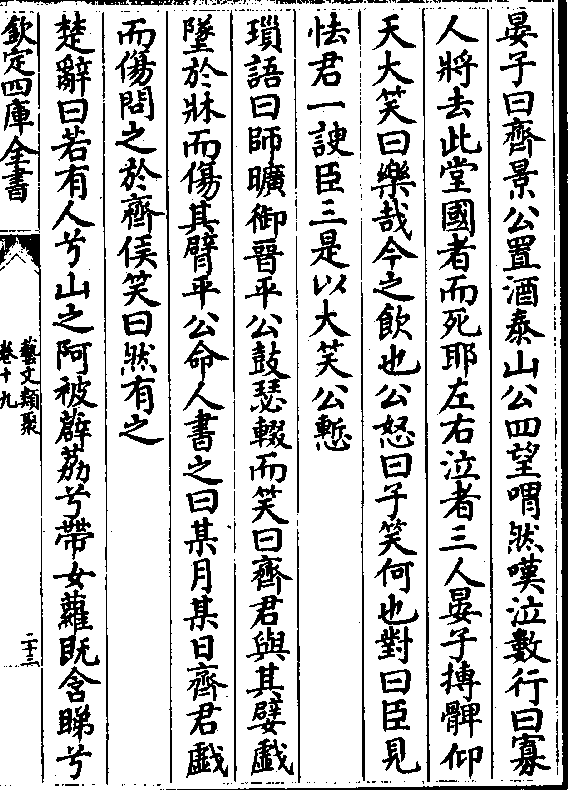 晏子曰齊景公置酒泰山公四望喟然嘆泣數行曰寡
人將去此堂國者而死耶左右泣者三人晏子搏髀仰
天大笑曰樂哉今之飲也公怒曰子笑何也對曰臣見
怯君一諛臣三是以大笑公慙
瑣語曰師曠御晉平公鼓瑟輟而笑曰齊君與其嬖戲
墜於牀而傷其臂平公命人書之曰某月某日齊君戲
而傷問之於齊侯笑曰然有之
楚辭曰若有人兮山之阿被薜荔兮帶女蘿既含睇兮
欽定四庫全書
藝文類聚
卷十九
二十三